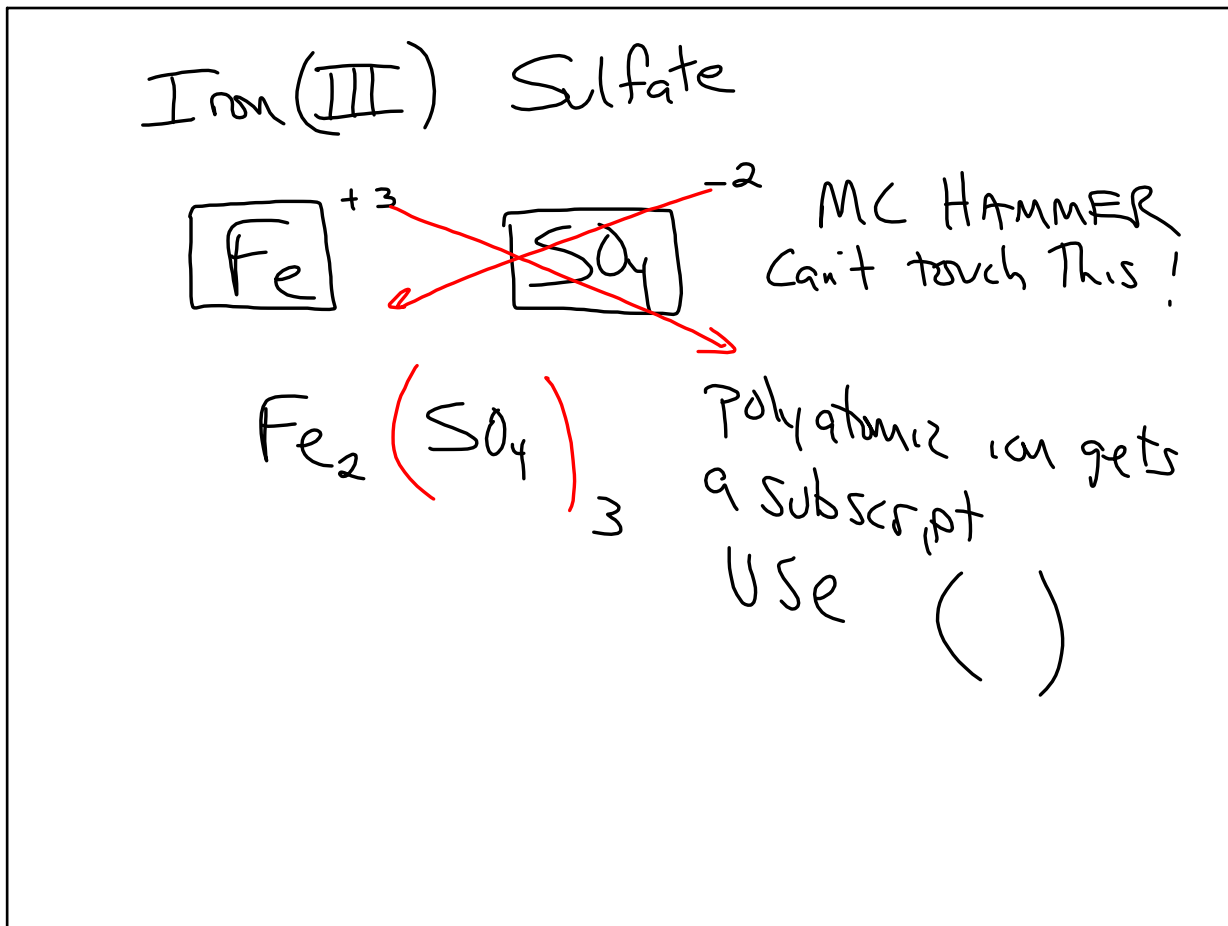 Iron (III) Sulfate
Fe +3 SO4 -2
MC HAMMER
Can't touch This!
Fe2 (SO4)3
Polyatomic ion gets
a subscript
Use ( )